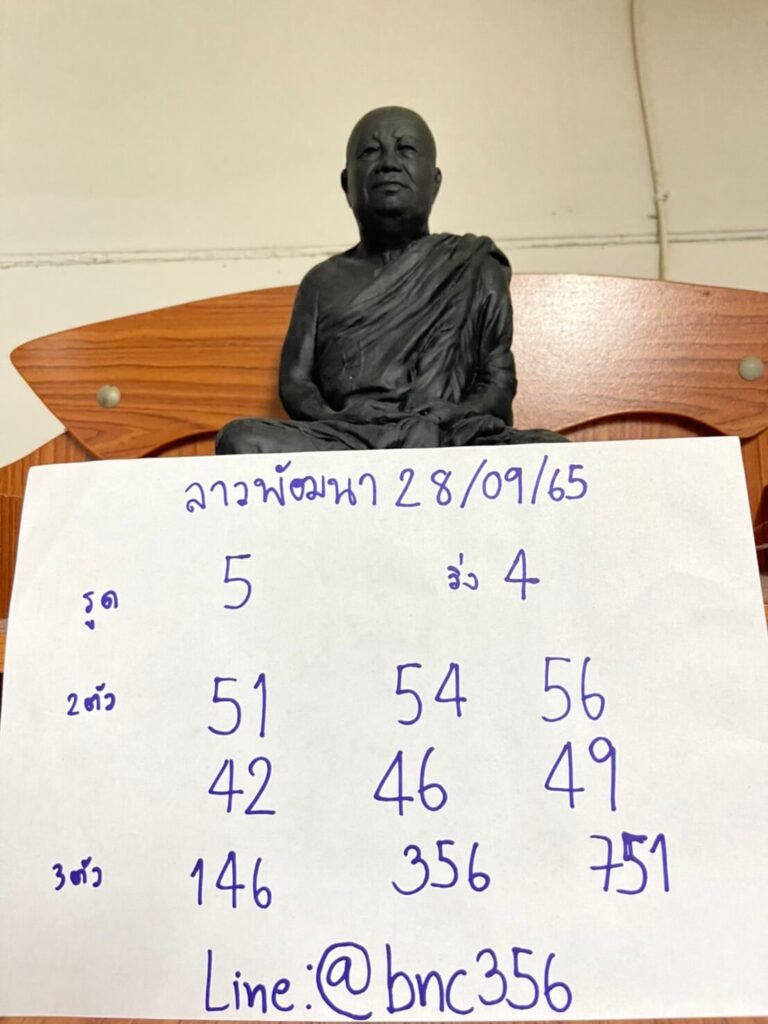 ลาวพัฒนา 28/09/65
รูด 5 วิ่ง 4
2ตัว 51 54 56
42 46 49
3ตัว 146 356 751
Line:@bnc356